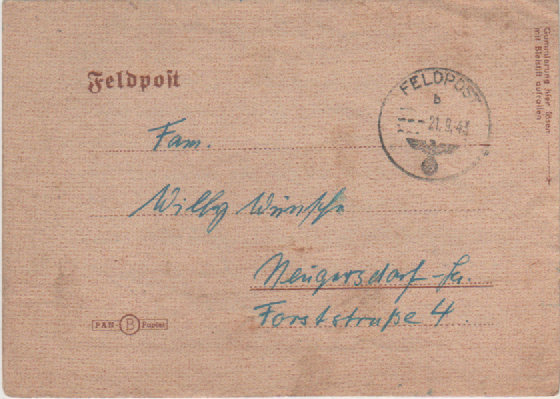 Feldpost
FELDPOST
b
21.9.43
Gummierung hier lösen
mit Bleistift aufrollen
Fam.
Willy Wünsche
Neugersdorf-Sa.
Forststraße 4.
PAN B Papier